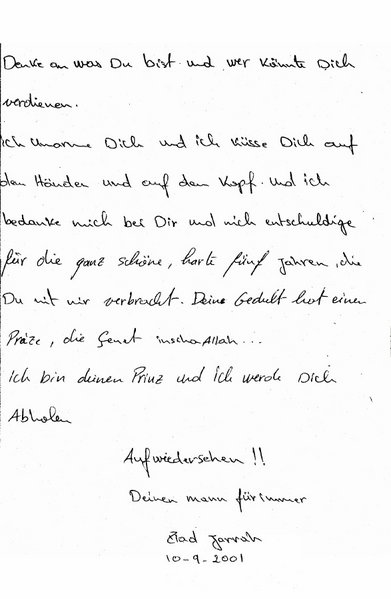 Denke an was Du bist und wer könnte Dich
verdienen.
Ich umarme Dich und ich küsse Dich auf
den Händen und auf dem Kopf. Und ich
bedanke mich bei Dir und mich entschuldige
für die ganz schöne, harte fünf Jahren, die
Du mit mir verbracht. Deine Gedult hat einen
Preize, die Genet inscha Allah...
Ich bin deinen Prinz und Ich werde Dich
Abholen
Aufwiedersehen !!
Deinen mann für immer
Ziad Jarrah
10-9-2001